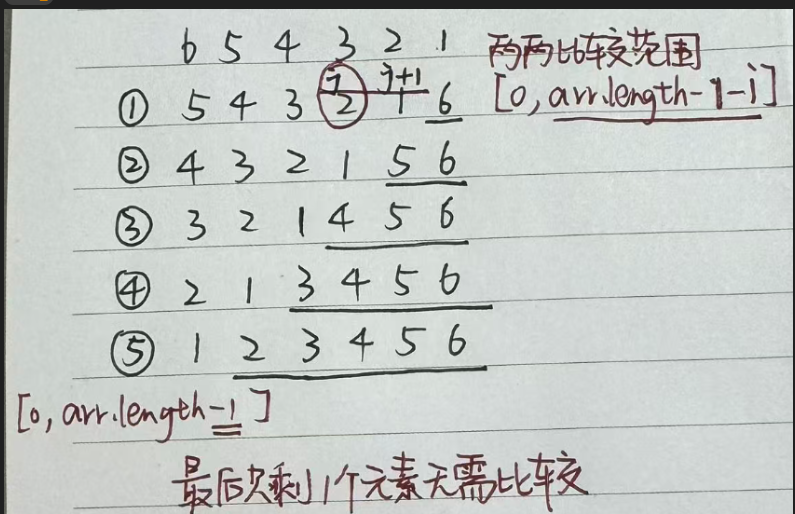 6 5 4 3 2 1 两两比较范围
j j+1
① 5 4 3 2 1 6 [0, arr.length-1-i]
② 4 3 2 1 5 6
③ 3 2 1 4 5 6
④ 2 1 3 4 5 6
⑤ 1 2 3 4 5 6
[0, arr.length-1]
最后次剩1个元素无需比较